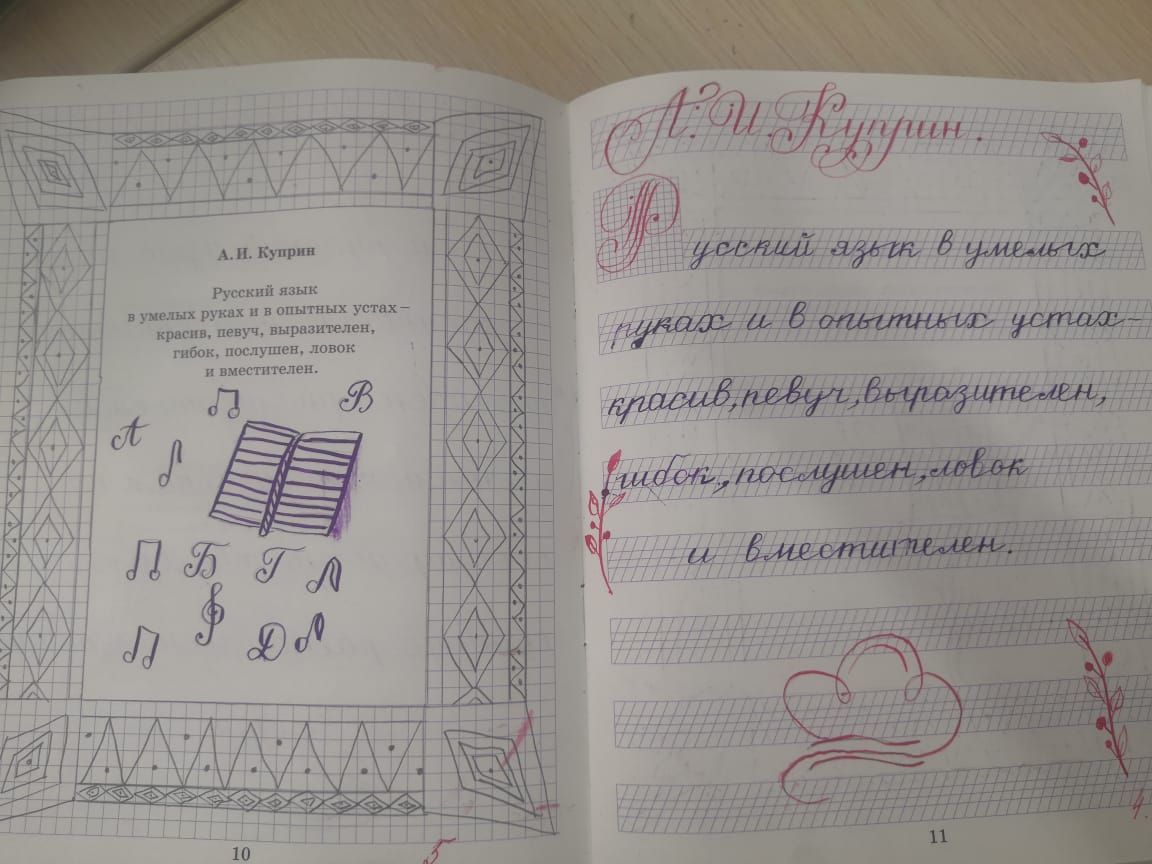 А. И. Куприн
Русский язык
в умелых руках и в опытных устах –
красив, певуч, выразителен,
гибок, послушен, ловок
и вместителен.
В
А
Б Г Л
Д Л
10
5
А. И. Куприн.
Русский язык в умелых
руках и в опытных устах –
красив, певуч, выразителен,
гибок, послушен, ловок
и вместителен.
11
4.